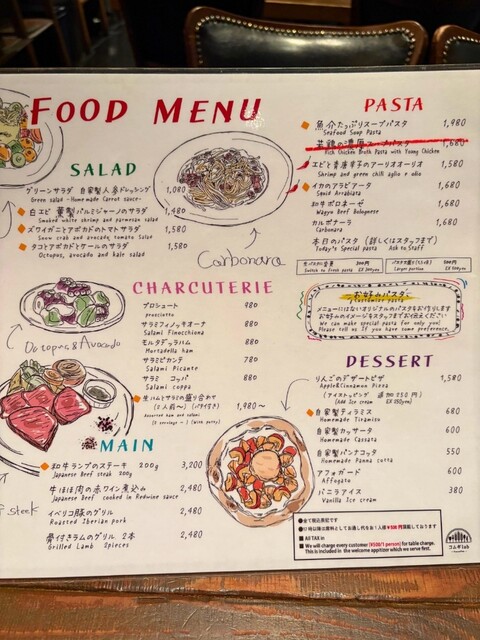 FOOD MENU
SALAD
グリーンサラダ 自家製人参ドレッシング 1,080
Green salad -Homemade Carrot sauce-
白エビ 薫製パルミジャーノのサラダ 1,480
Smoked white shrimp and parmesan salad
ズワイガニとアボカドのトマトサラダ 1,580
Snow crab and avocado tomato Salad
タコとアボカドとケールのサラダ 1,580
Octopus, avocado and kale salad
Carbonara
Octopus & Avocado
CHARCUTERIE
プロシュート 980
prosciutto
サラミフィノッキオーナ 880
Salami Finocchiona
モルタデッラハム 880
Mortadella ham
サラミピカンテ 780
Salami piccante
サラミ コッパ 880
Salami coppa
生ハムとサラミの盛り合わせ
(2人前〜) (パテ付き) 1,980〜
Assorted ham and salami
MAIN
和牛ランプのステーキ 200g 3,200
Japanese Beef steak 200g
牛ほほ肉の赤ワイン煮込み 2,480
Japanese Beef cooked in Redwine sauce
イベリコ豚のグリル 2,480
Roasted Iberian pork
骨付きラムのグリル 2本 2,480
Grilled Lamb 2pieces
steak
PASTA
魚介たっぷりスープパスタ 1,980
Seafood Soup Pasta
若鶏の濃厚スープパスタ 1,680
Rich Chicken Broth Pasta with Young Chicken
エビと青唐辛子のアーリオオーリオ 1,580
Shrimp and green chili aglio e olio
イカのアラビアータ 1,680
Squid Arrabiata
和牛ボロネーゼ 1,680
Wagyu Beef Bolognese
カルボナーラ 1,680
Carbonara
本日のパスタ (詳しくはスタッフまで)
Today's Special pasta Ask to Staff
生パスタに変更 200円
Switch to Fresh pasta EX 200yen
パスタ大盛り 500円
Larger portion EX 500yen
お好みパスタ
Customize pasta
メニューにはないオリジナルのパスタをお作りします
お好みのイメージをスタッフまでお伝えください
We can make special pasta for only you!
Please tell us if you have some preference.
DESSERT
りんごのデザートピザ 1,580
Apple&Cinnamon Pizza
(アイストッピング 追加250円)
(Add Ice cream EX 250yen)
自家製ティラミス 680
Homemade Tiramisu
自家製カッサータ 600
Homemade Cassata
自家製パンナコッタ 550
Homemade Panna cotta
アフォガード 600
Affogato
バニラアイス 380
Vanilla Ice cream
●全て税込表記です
■All TAX in
■We will charge every customer (¥500/1 person) for table charge.
This is included in the welcome appitizer which we serve first.
コムギlab